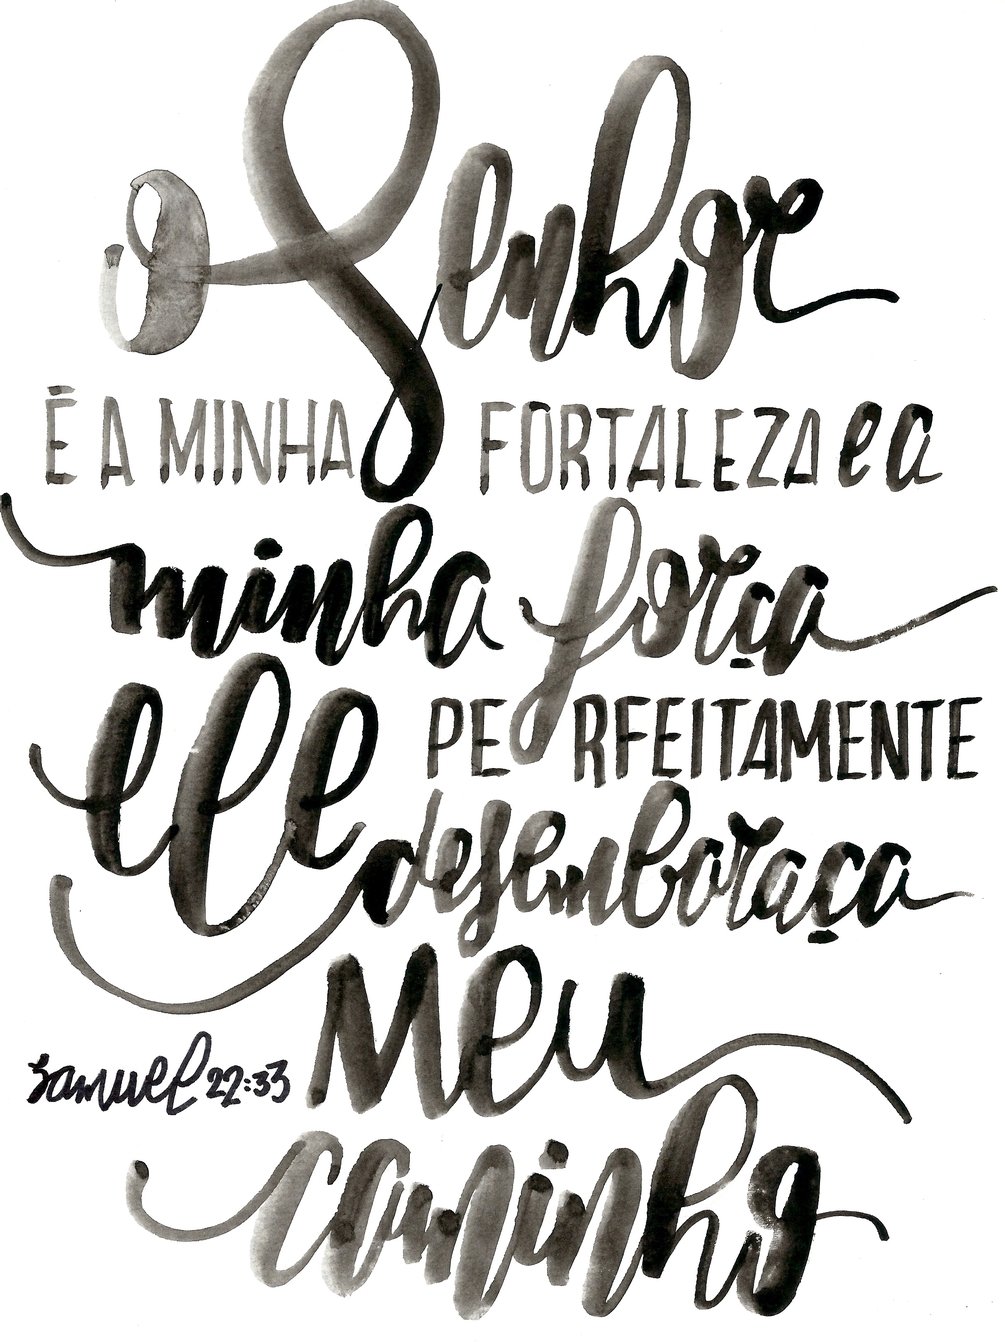 o Senhor
É A MINHA FORTALEZA e a
minha força
ele PERFEITAMENTE
desembaraça
Meu
Samuel 22:33
caminho